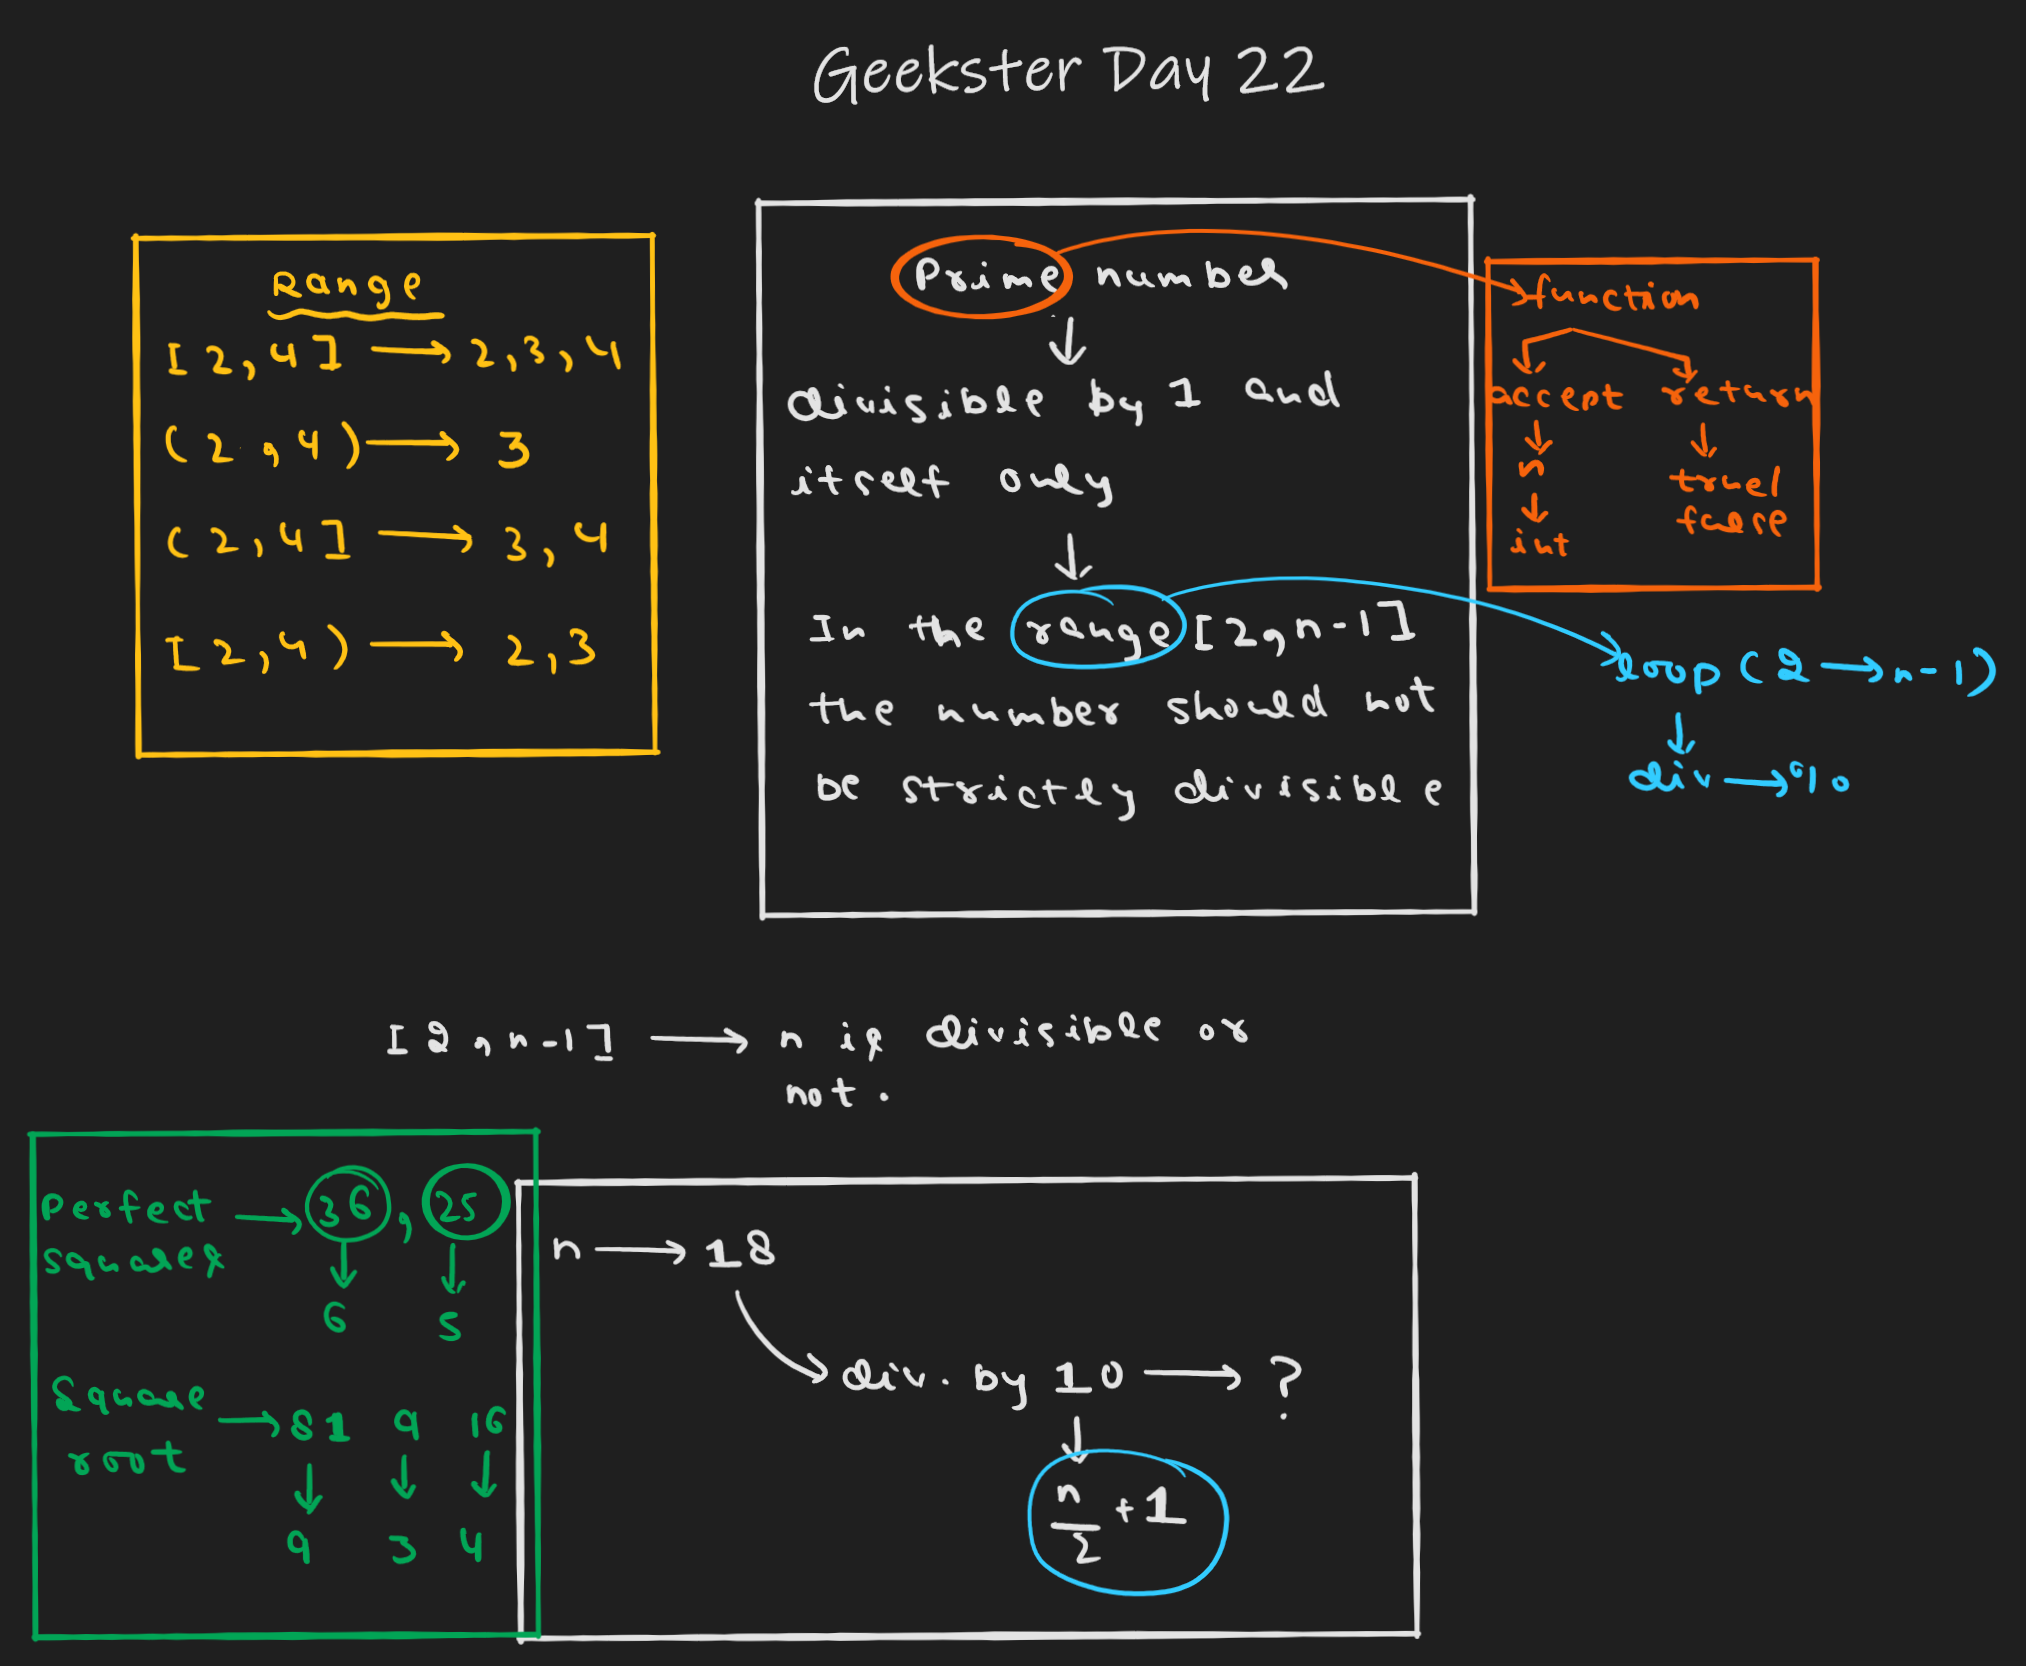 Geekster Day 22
Range
[2,4] → 2,3,4
(2,4) → 3
(2,4] → 3,4
[2,4) → 2,3
Prime number
↓
divisible by 1 and
itself only
↓
In the range [2,n-1]
the number should not
be strictly divisible
function
accept return
↓ ↓
n true/
↓ false
int
loop (2 → n-1)
↓
div → %
[2,n-1] → n is divisible or
not.
Perfect → 36, 25
squares ↓ ↓
6 5
Square → 81 9 16
root ↓ ↓ ↓
9 3 4
n → 18
div. by 10 → ?
↓
n/2 + 1